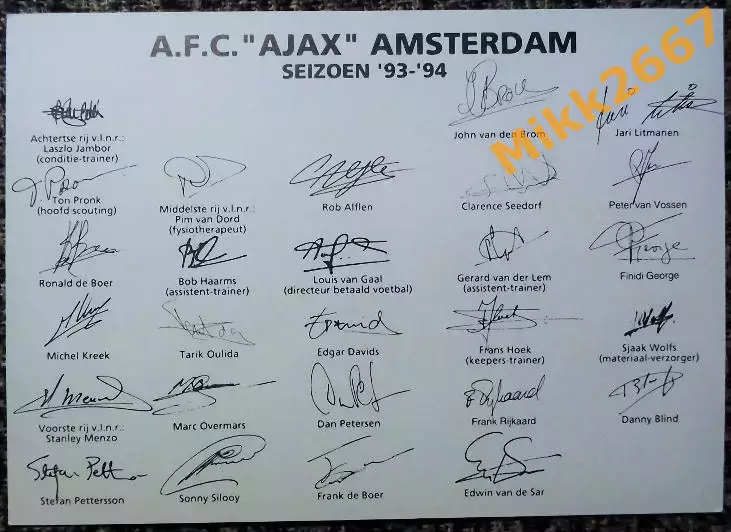 A.F.C. "AJAX" AMSTERDAM
SEIZOEN '93-'94
Mikk2667
Achtertse rij v.l.n.r.:
Laszlo Jambor
(conditie-trainer)
John van den Brom
Jari Litmanen
Ton Pronk
(hoofd scouting)
Middelste rij v.l.n.r.:
Pim van Dord
(fysiotherapeut)
Rob Alflen
Clarence Seedorf
Peter van Vossen
Ronald de Boer
Bob Haarms
(assistent-trainer)
Louis van Gaal
(directeur betaald voetbal)
Gerard van der Lem
(assistent-trainer)
Finidi George
Michel Kreek
Tarik Oulida
Edgar Davids
Frans Hoek
(keepers-trainer)
Sjaak Wolfs
(materiaal-verzorger)
Voorste rij v.l.n.r.:
Stanley Menzo
Marc Overmars
Dan Petersen
Frank Rijkaard
Danny Blind
Stefan Pettersson
Sonny Silooy
Frank de Boer
Edwin van de Sar